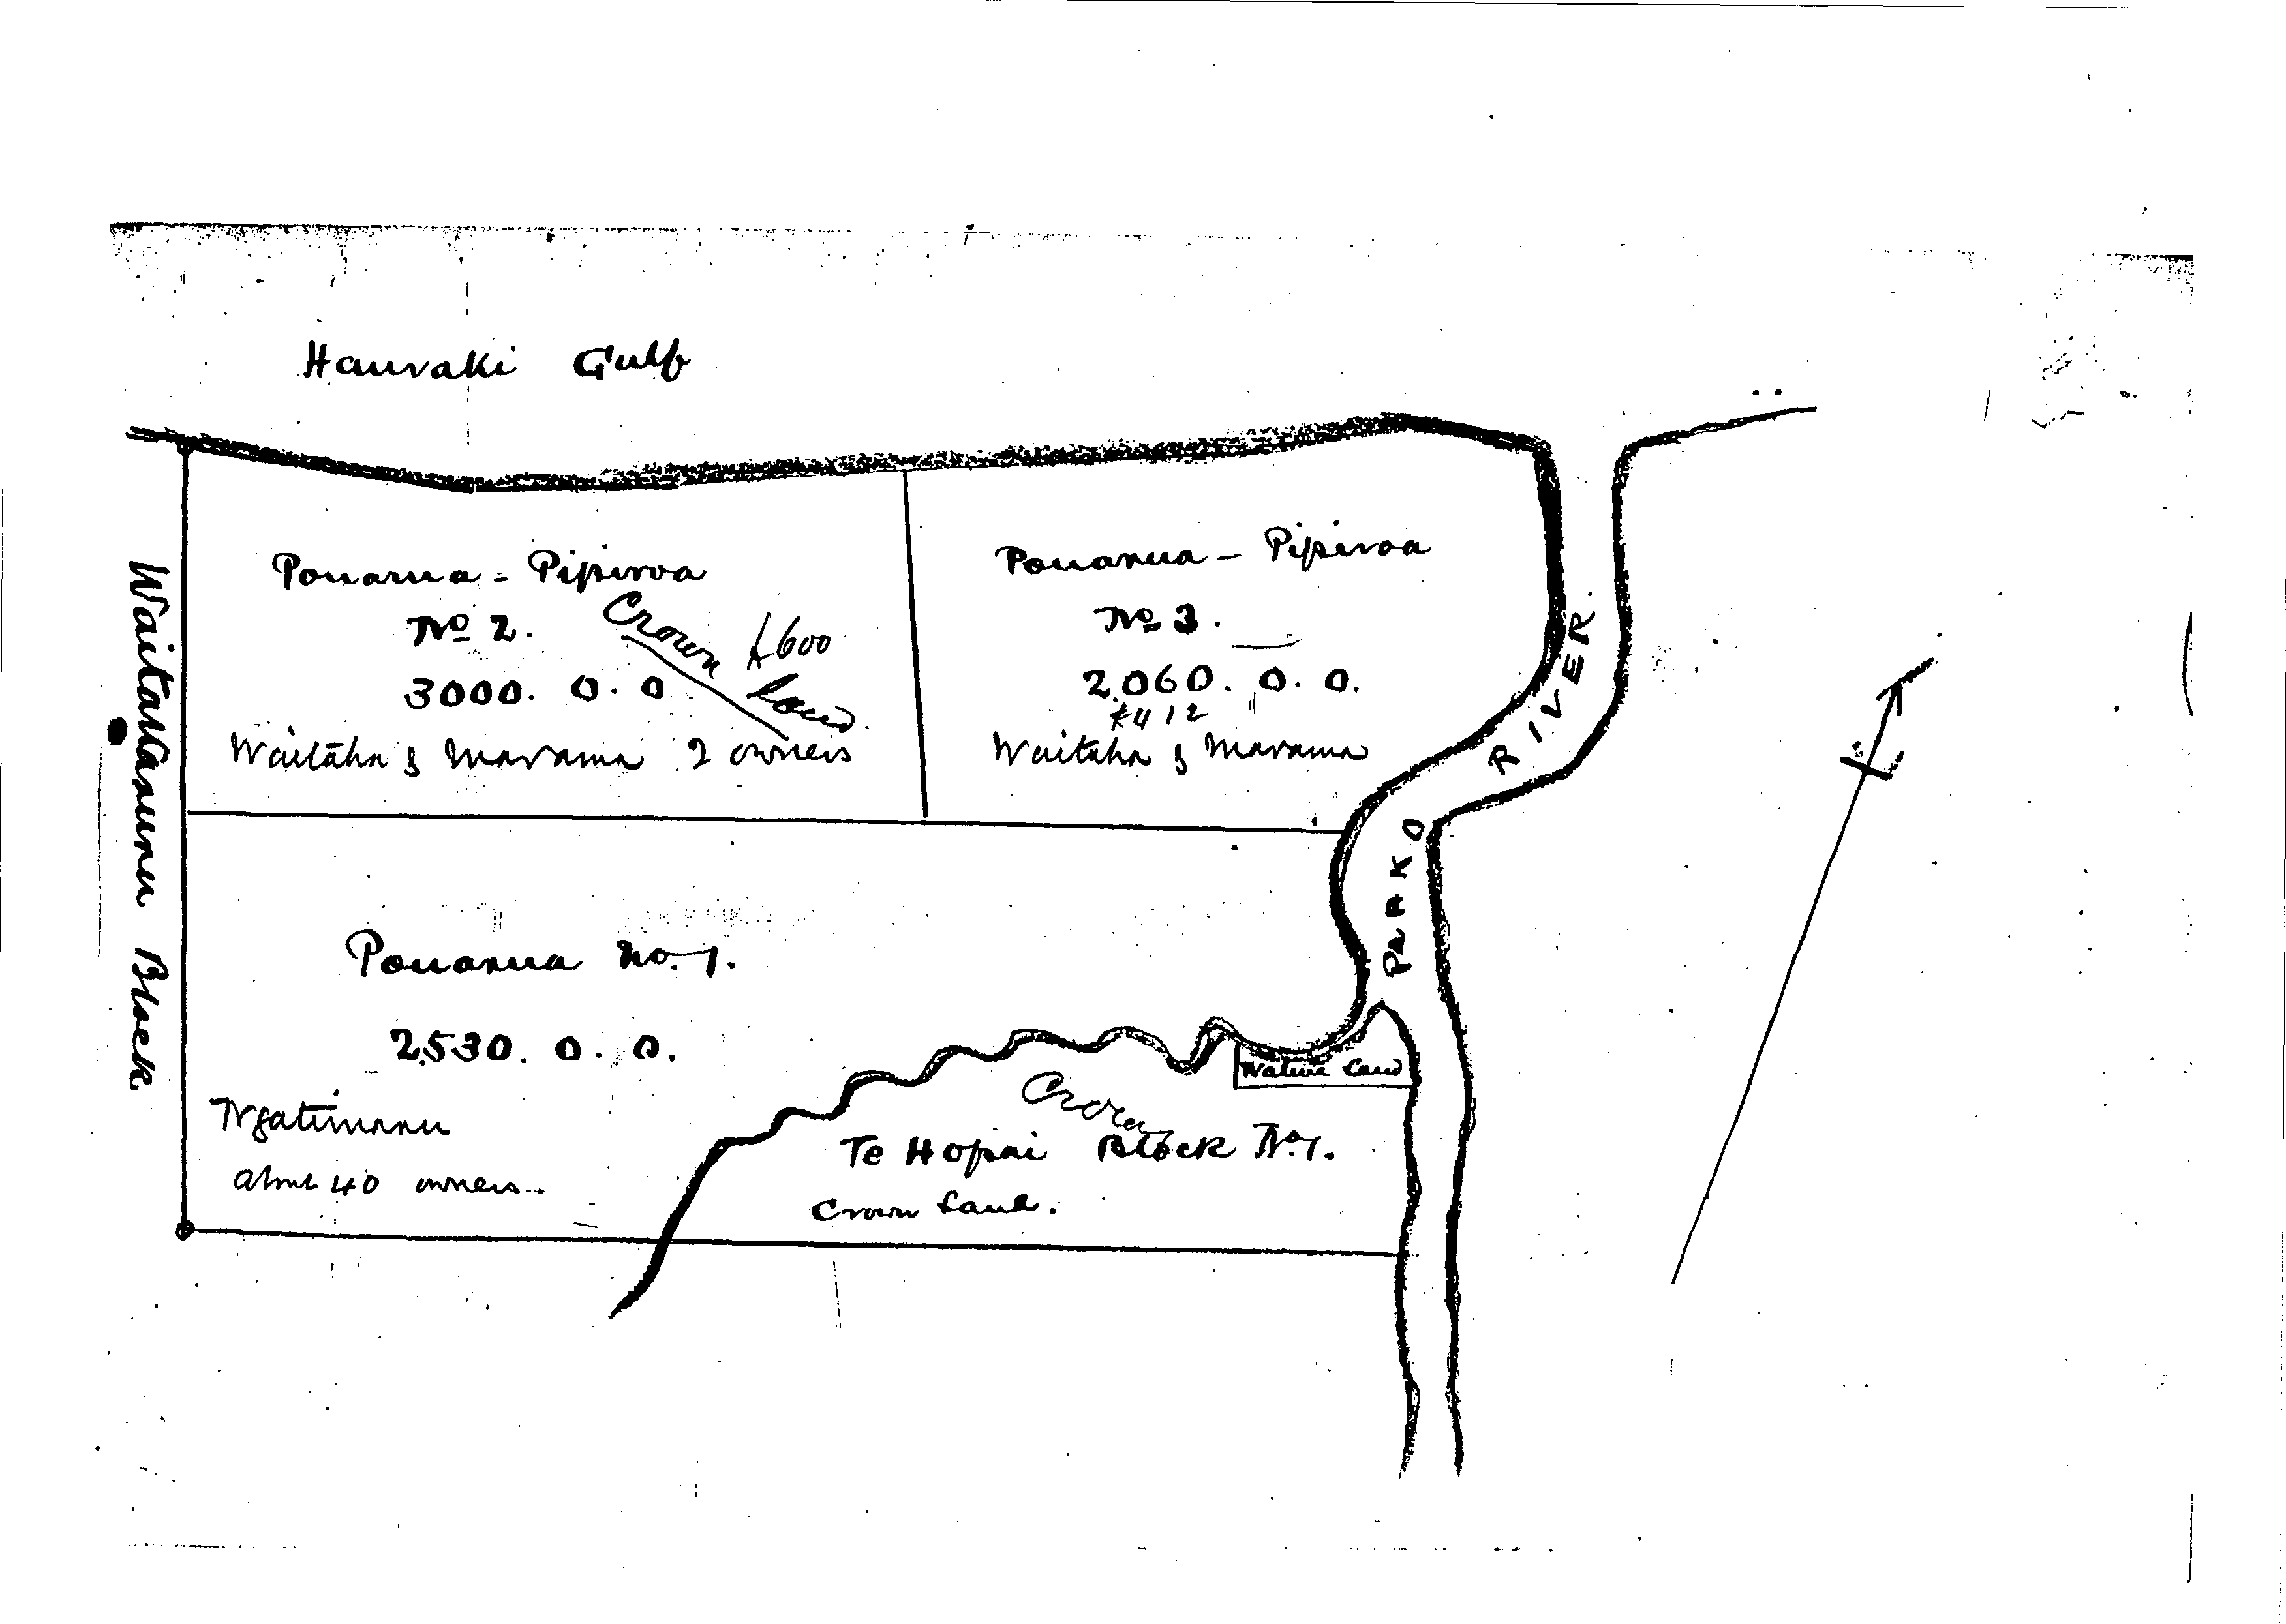 Hauraki Gulf
Waitakaruru Block
Pouarua - Pipiroa
No 2.
Crown Land
£600
3000. 0. 0
Waitaha & Marama 2 owners
Pouarua - Pipiroa
No 3.
2.060. 0. 0.
£412
Waitaha & Marama
PIAKO RIVER.
Pouarua No. 1.
2530. 0. 0.
Ngatimaru
about 40 owners.
Native Land
Crown
Te Hopai Block No. 1.
Crown Land.